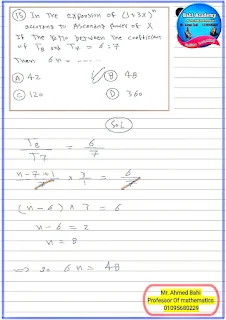 (15) In the expansion of (1+3x)ⁿ
according to Ascending power of X
If the Ratio between the coefficient
of T8 and T7 = 6 : 7
Then 6n = .....
A 42
B 48
C 120
D 360
Bahi Academy
Sol
T8 / T7 = 6 / 7
n-7+1 / 7 × 3 / 1 = 6 / 7
(n-6) × 3 = 6
n-6 = 2
n = 8
⇒ so 6n = 48
Mr. Ahmed Bahi
Professor Of mathematics
01095680229